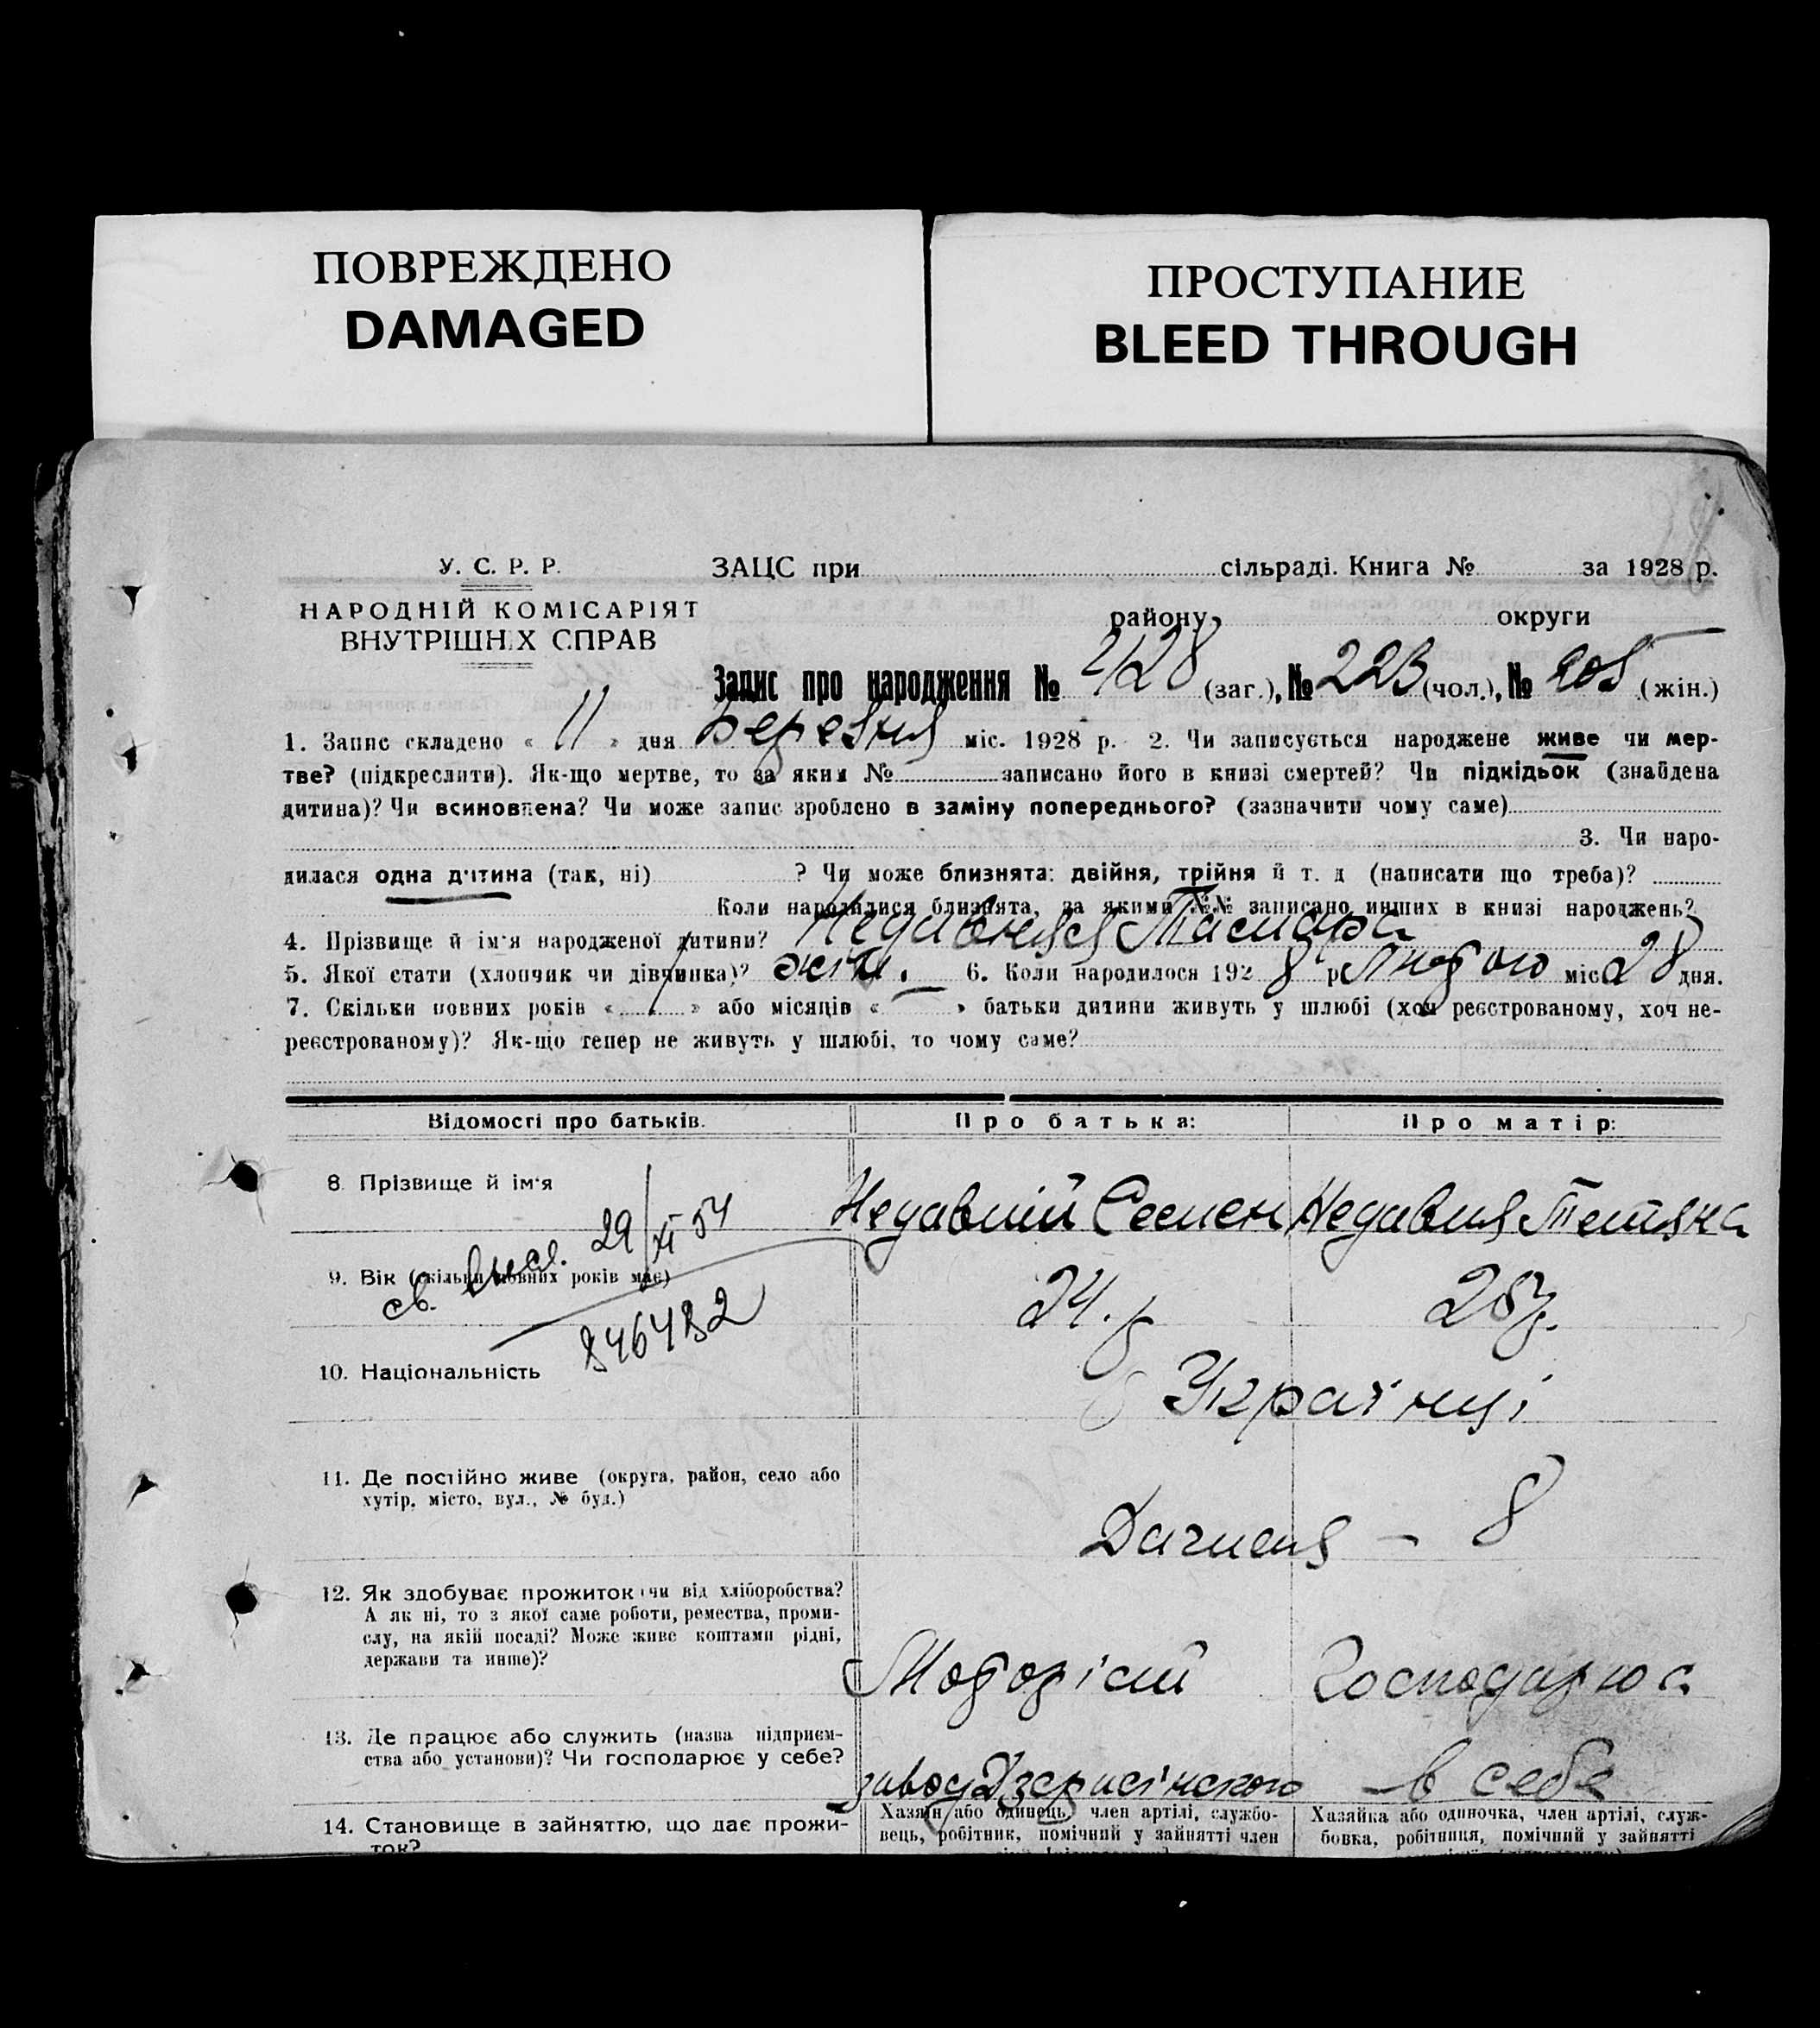 ПОВРЕЖДЕНО
DAMAGED
ПРОСТУПАНИЕ
BLEED THROUGH
У. С. Р. Р.
НАРОДНІЙ КОМІСАРІЯТ
ВНУТРІШНІХ СПРАВ
ЗАЦС при сільраді. Книга № за 1928 р.
району, округи
Запис про народження № 428 (заг.), № 223 (чол.), № 205 (жін.)
1. Запис складено « 11 » дня Березня міс. 1928 р. 2. Чи записується народжене живе чи мер-
тве? (підкреслити). Як-що мертве, то за яким № записано його в книзі смертей? Чи підкідьок (знайдена
дитина)? Чи всиновлена? Чи може запис зроблено в заміну попереднього? (зазначити чому саме)
3. Чи наро-
дилася одна дитина (так, ні) ? Чи може близнята: двійня, трійня й т. д (написати що треба)?
Коли народилися близнята, за якими №№ записано инших в книзі народжень?
4. Прізвище й ім'я народженої дитини? Недавня Тамара
5. Якої стати (хлопчик чи дівчинка)? жін. 6. Коли народилося 1928 р. Лютого міс 28 дня.
7. Скільки повних років « » або місяців « — » батьки дитини живуть у шлюбі (хоч реєстрованому, хоч не-
реєстрованому)? Як-що тепер не живуть у шлюбі, то чому саме?
Відомості про батьків. Про батька: Про матір:
8. Прізвище й ім'я Недавній Семен Недавня Тетяна
св. 29/XI 54
9. Вік (скільки повних років має) 24. р
846482
10. Національність Українці
11. Де постійно живе (округа, район, село або
хутір, місто, вул., № буд.)
– 8
12. Як здобуває прожиток чи від хліборобства?
А як ні, то з якої саме роботи, ремества, проми-
слу, на якій посаді? Може живе коштами рідні,
держави та инше)?
Моторіст Господарює
13. Де працює або служить (назва підприєм-
ства або установи)? Чи господарює у себе?
завод Дзержінского в себе
14. Становище в зайняттю, що дає прожи-
ток?
Хазяїн або одинець, член артілі, службо-
вець, робітник, помічний у зайнятті член
Хазяйка або одиночка, член артілі, служ-
бовка, робітниця, помічний у зайнятті